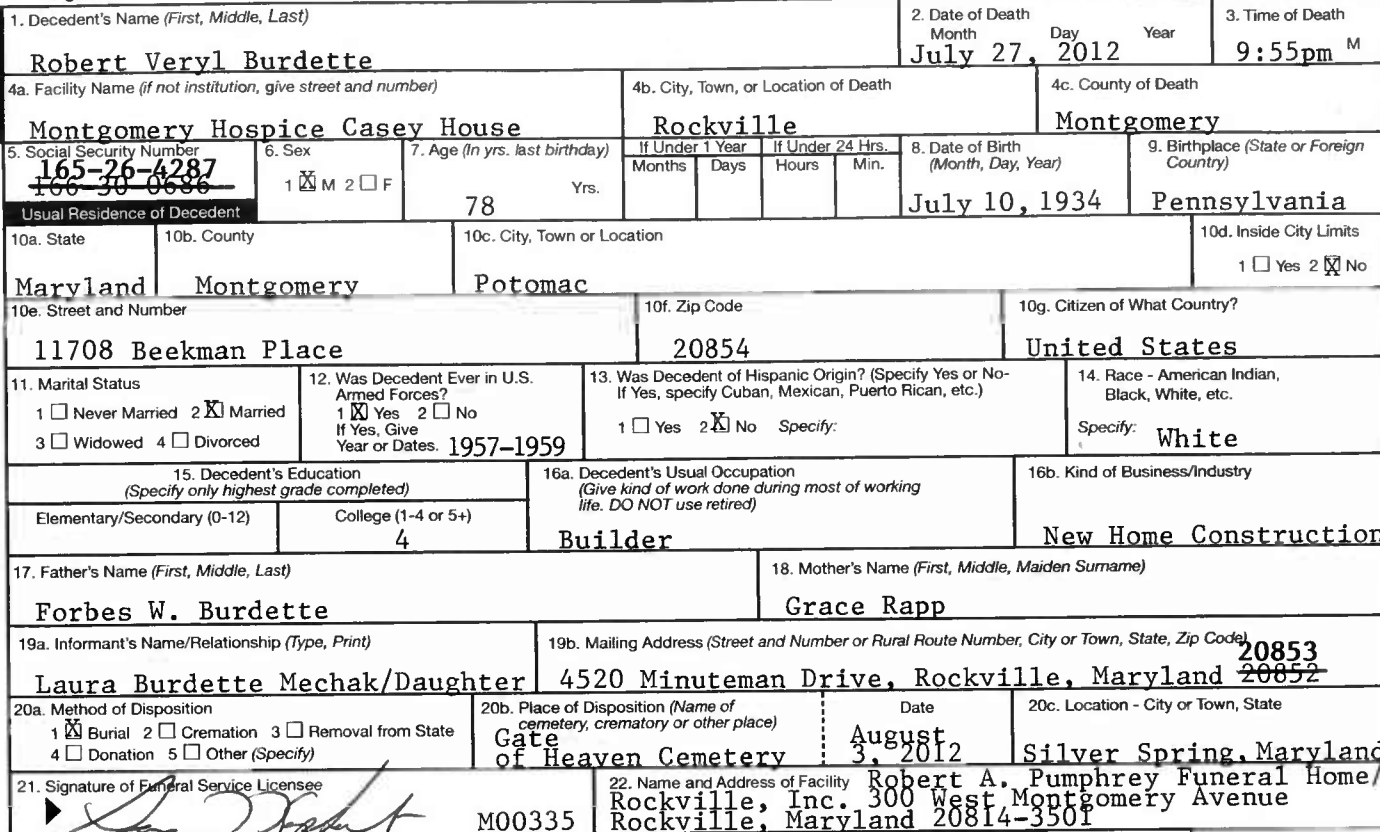 1. Decedent's Name (First, Middle, Last)
Robert Veryl Burdette
2. Date of Death
Month Day Year
July 27, 2012
3. Time of Death
9:55pm M
4a. Facility Name (if not institution, give street and number)
Montgomery Hospice Casey House
4b. City, Town, or Location of Death
Rockville
4c. County of Death
Montgomery
5. Social Security Number
165-26-4287
166-30-0686
6. Sex
1 X M 2 ☐ F
7. Age (In yrs. last birthday)
78 Yrs.
If Under 1 Year
Months Days
If Under 24 Hrs.
Hours Min.
8. Date of Birth
(Month, Day, Year)
July 10, 1934
9. Birthplace (State or Foreign
Country)
Pennsylvania
Usual Residence of Decedent
10a. State
Maryland
10b. County
Montgomery
10c. City, Town or Location
Potomac
10d. Inside City Limits
1 ☐ Yes 2 X No
10e. Street and Number
11708 Beekman Place
10f. Zip Code
20854
10g. Citizen of What Country?
United States
11. Marital Status
1 ☐ Never Married 2 X Married
3 ☐ Widowed 4 ☐ Divorced
12. Was Decedent Ever in U.S.
Armed Forces?
1 X Yes 2 ☐ No
If Yes, Give
Year or Dates. 1957-1959
13. Was Decedent of Hispanic Origin? (Specify Yes or No-
If Yes, specify Cuban, Mexican, Puerto Rican, etc.)
1 ☐ Yes 2 X No Specify:
14. Race - American Indian,
Black, White, etc.
Specify: White
15. Decedent's Education
(Specify only highest grade completed)
Elementary/Secondary (0-12)
College (1-4 or 5+)
4
16a. Decedent's Usual Occupation
(Give kind of work done during most of working
life. DO NOT use retired)
Builder
16b. Kind of Business/Industry
New Home Construction
17. Father's Name (First, Middle, Last)
Forbes W. Burdette
18. Mother's Name (First, Middle, Maiden Surname)
Grace Rapp
19a. Informant's Name/Relationship (Type, Print)
Laura Burdette Mechak/Daughter
19b. Mailing Address (Street and Number or Rural Route Number, City or Town, State, Zip Code)
20853
4520 Minuteman Drive, Rockville, Maryland 20852
20a. Method of Disposition
1 X Burial 2 ☐ Cremation 3 ☐ Removal from State
4 ☐ Donation 5 ☐ Other (Specify)
20b. Place of Disposition (Name of
cemetery, crematory or other place)
Gate
of Heaven Cemetery
Date
August
3, 2012
20c. Location - City or Town, State
Silver Spring, Maryland
21. Signature of Funeral Service Licensee
M00335
22. Name and Address of Facility Robert A. Pumphrey Funeral Home/
Rockville, Inc. 300 West Montgomery Avenue
Rockville, Maryland 20814-3501